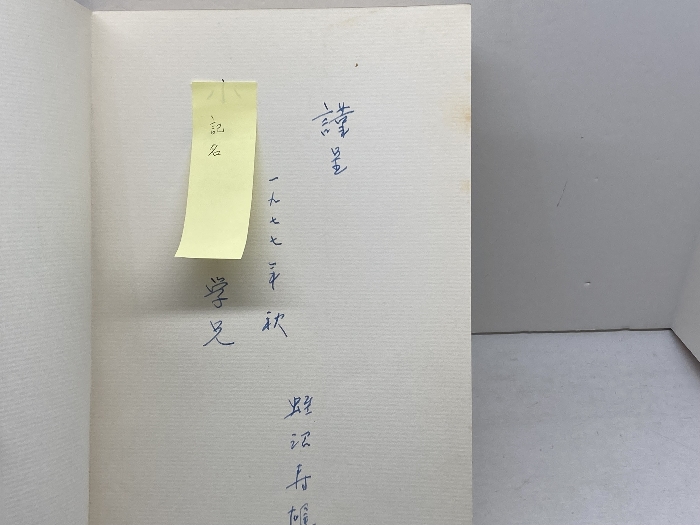 謹呈
一九七七年 秋
記名
学兄
蛭沼寿雄